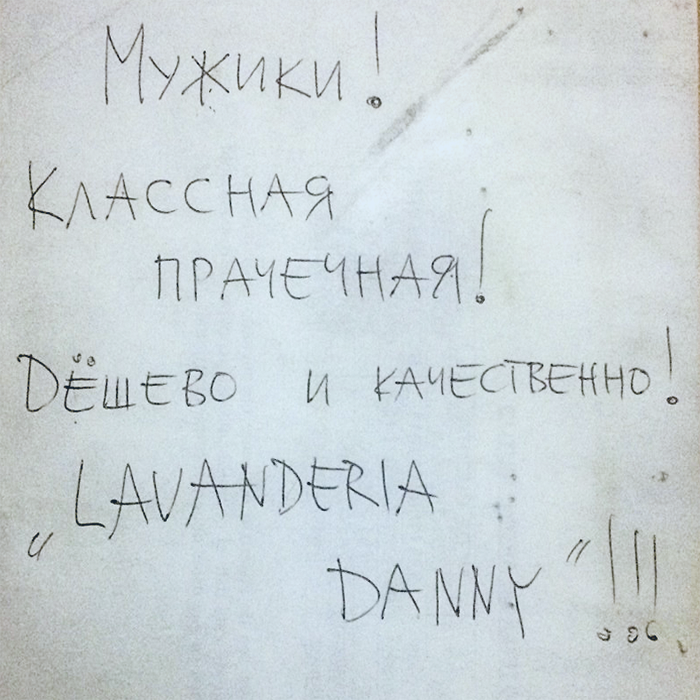 Мужики!
Классная
прачечная!
Dёшево и качественно!
„Lavanderia
Danny"!!!